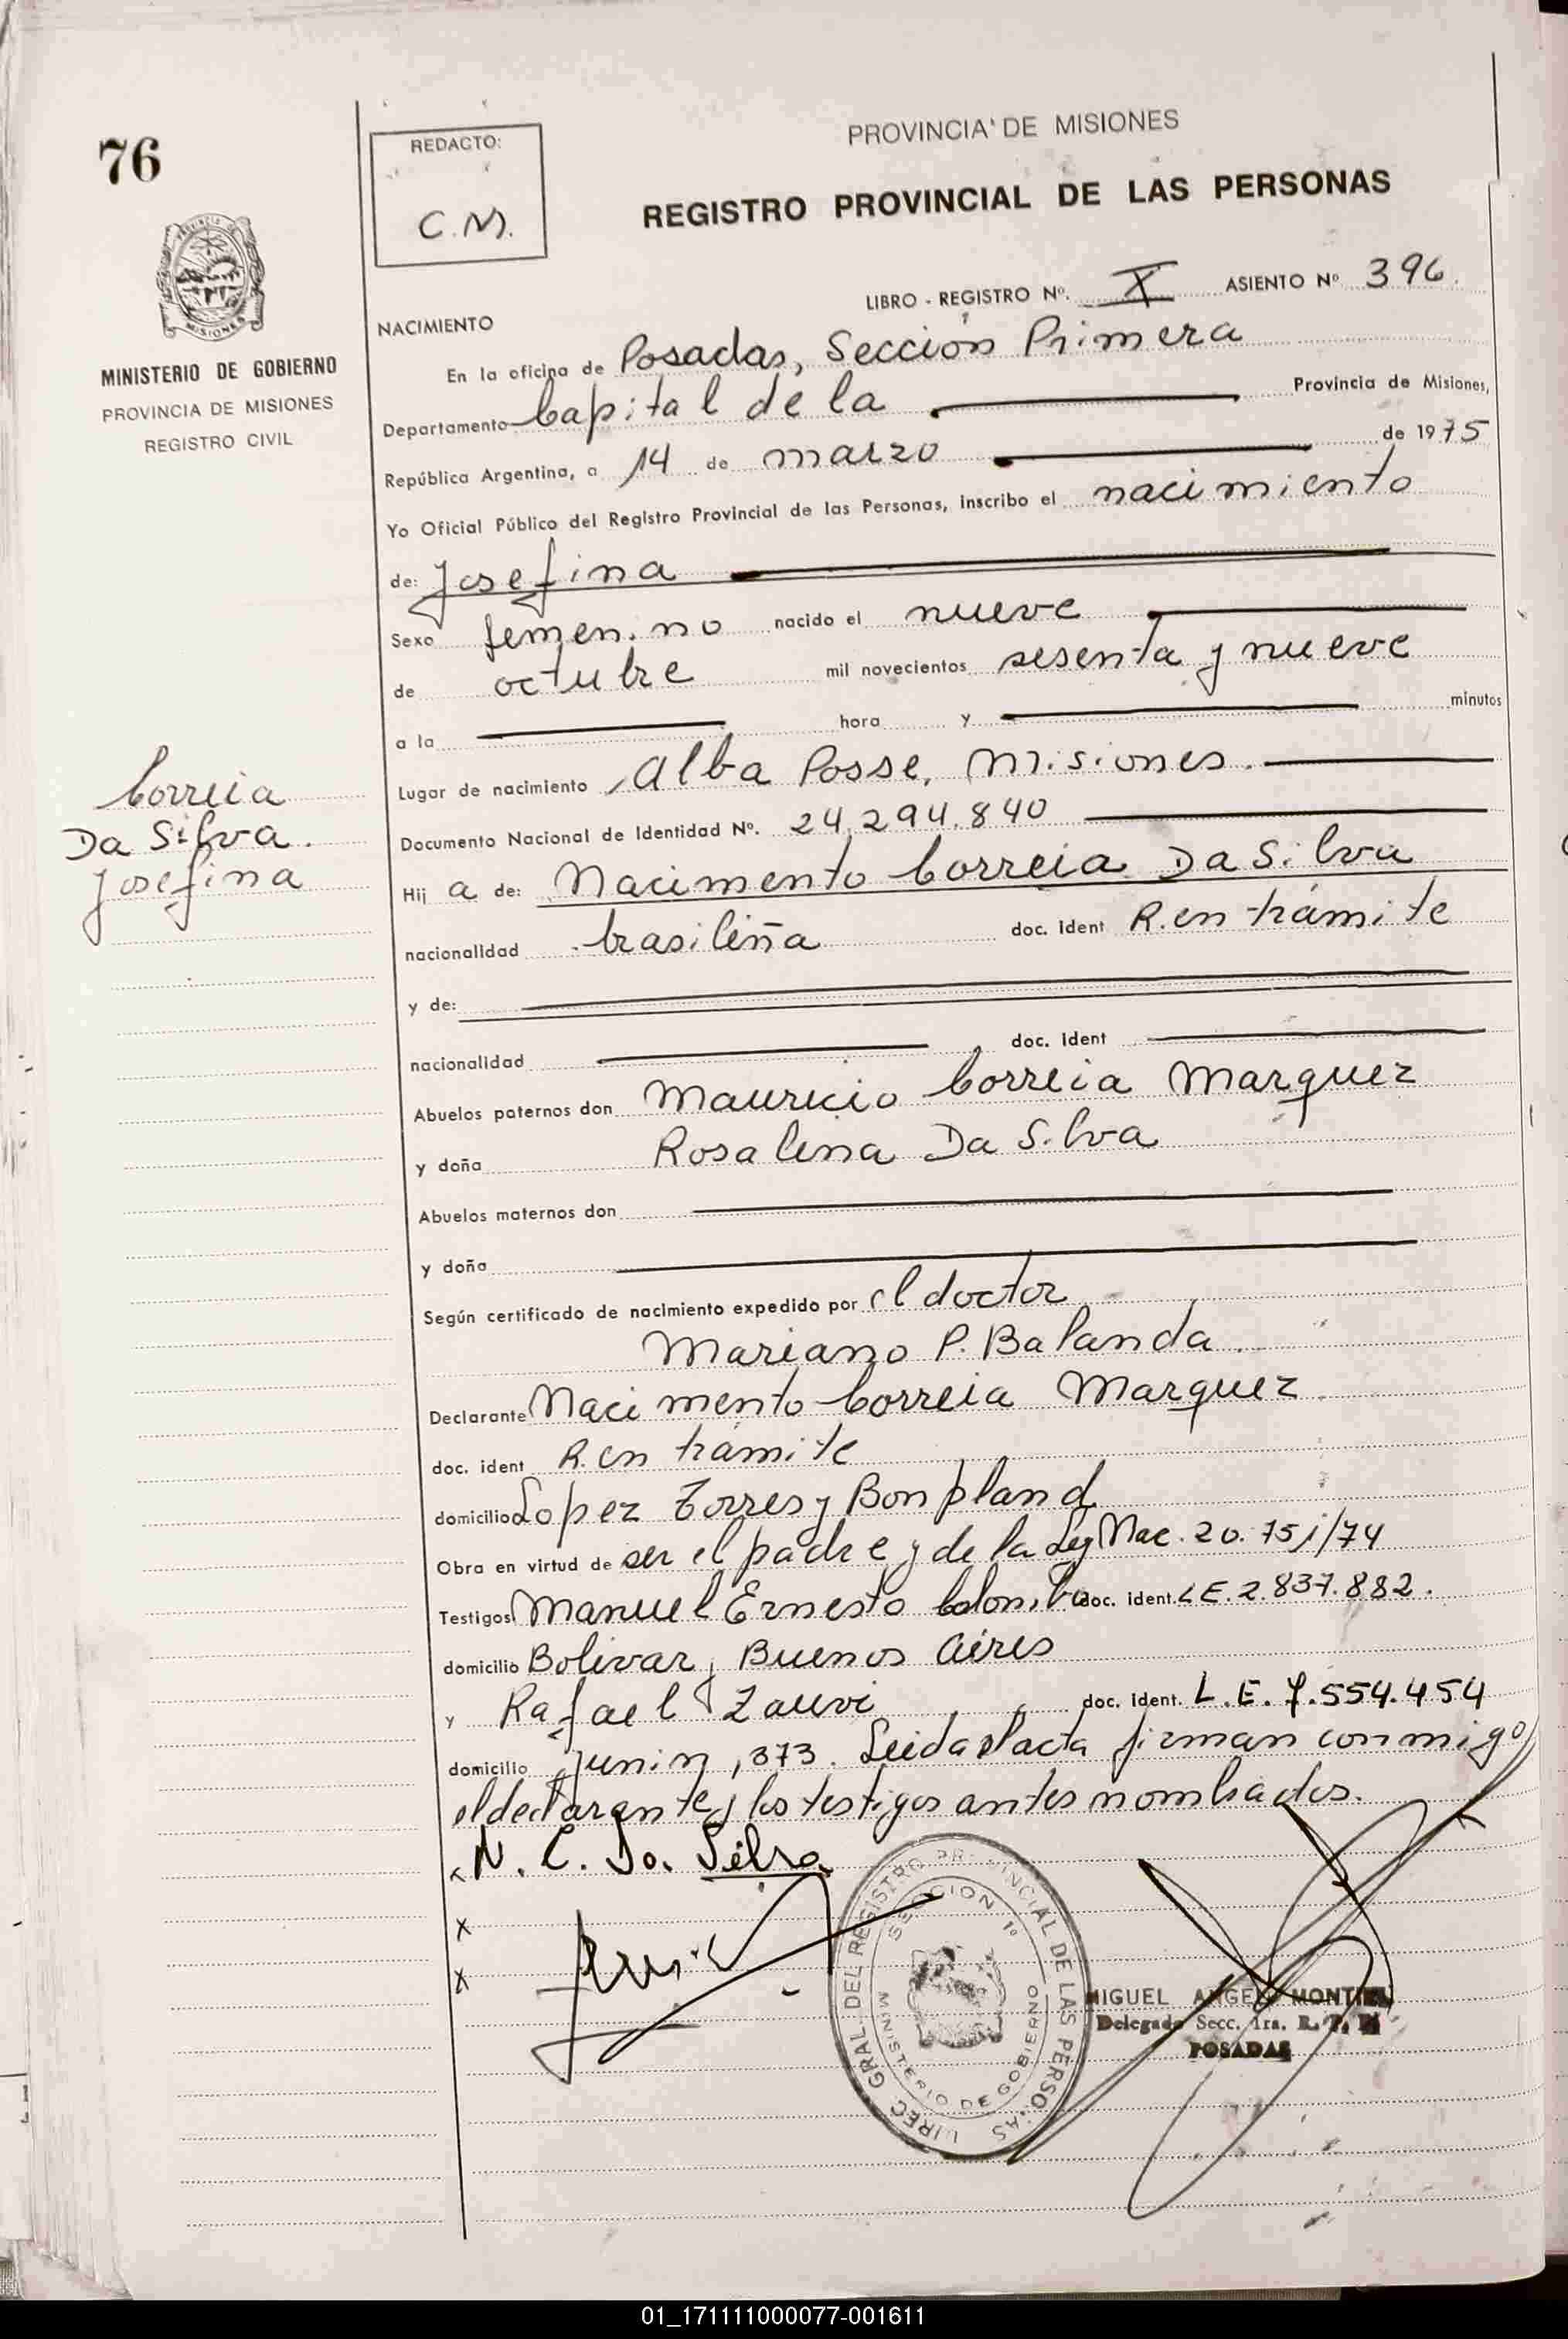 76
REDACTO:
C.M.
PROVINCIA DE MISIONES
REGISTRO PROVINCIAL DE LAS PERSONAS
LIBRO - REGISTRO Nº. X ASIENTO Nº 396.
MINISTERIO DE GOBIERNO
PROVINCIA DE MISIONES
REGISTRO CIVIL
NACIMIENTO
En la oficina de Posadas, Sección Primera
Departamento Capital de la Provincia de Misiones,
República Argentina, a 14 de marzo de 1975
Yo Oficial Público del Registro Provincial de las Personas, inscribo el nacimiento
de: Josefina
Sexo femenino nacido el nueve
de octubre mil novecientos sesenta y nueve
a la hora y minutos
Lugar de nacimiento Alba Posse, Misiones.
Correia
Da Silva.
Josefina
Documento Nacional de Identidad Nº. 24.294.840
Hij a de: Nacimento Correia Da Silva
nacionalidad brasileña doc. Ident R. en trámite
y de:
nacionalidad doc. Ident
Abuelos paternos don Mauricio Correia Marquez
y doña Rosalina Da Silva
Abuelos maternos don
y doña
Según certificado de nacimiento expedido por el doctor
Mariano P. Balanda.
Declarante Nacimento Correia Marquez.
doc. ident R. en trámite
domicilio Lopez Torres y Bonpland
Obra en virtud de ser el padre y de la Ley Nac. 20.751/74
Testigos Manuel Ernesto doc. ident. L E. 2.837.882.
domicilio Bolivar, Buenos Aires
y Rafael Zauvi doc. ident. L.E. 7.554.454
domicilio Junin, 373. Leida el acta firman conmigo
el declarante y los testigos antes nombrados.
x N. C. Da. Silva
x
x
DIREC. GRAL. DEL REGISTRO PROVINCIAL DE LAS PERSONAS
SECCION 1º
MINISTERIO DE GOBIERNO
MIGUEL ANGEL MONTIEL
Delegado Secc. 1ra. R. P. P.
POSADAS
01_171111000077-001611